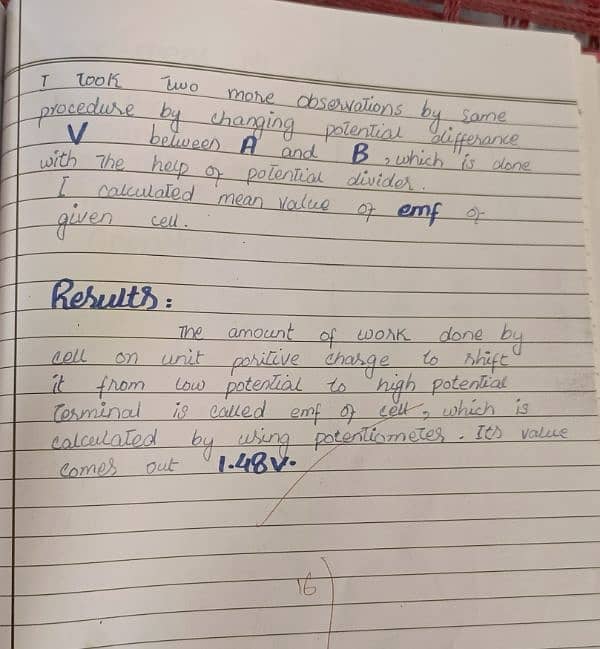 I took two more observations by same
procedure by changing potential differance
V between A and B, which is done
with the help of potential divider.
I calculated mean value of emf of
given cell.
Results:
The amount of work done by
cell on unit positive charge to shift
it from low potential to high potential
terminal is called emf of cell, which is
calculated by using potentiometer. Its value
comes out 1.48v.
16